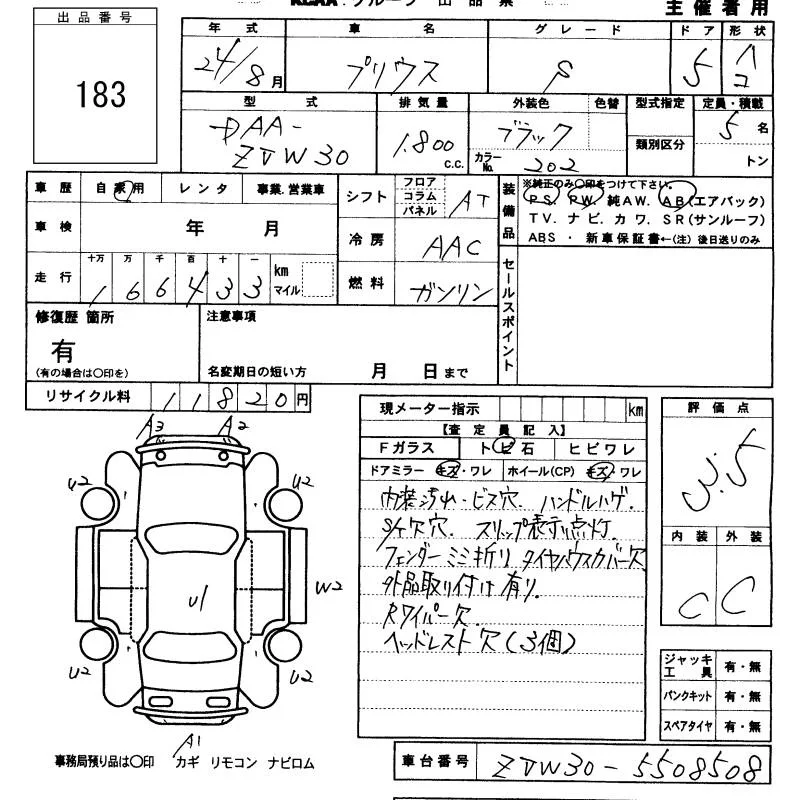 KCAA.グループ 出品票
主催者用
出品番号
183
年式 車名 グレード ドア 形状
24/8月 プリウス S 5 ハコ
型式 排気量 外装色 色替 型式指定 定員・積載
DAA-
ZVW30
1.800 c.c.
ブラック
カラーNo. 202
類別区分
5名
トン
車歴 自家用 レンタ 事業.営業車
車検 年 月
走行 十万 万 千 百 十 一
1 6 6 4 3 3 km マイル
シフト フロア コラム パネル AT
冷房 AAC
燃料 ガソリン
装備品
※純正のみ〇印をつけて下さい。
PS. PW. 純AW. AB(エアバック)
TV. ナビ. カワ. SR(サンルーフ)
ABS ・ 新車保証書←(注) 後日送りのみ
セールスポイント
修復歴 箇所
有
(有の場合は〇印を)
注意事項
名変期日の短い方 月 日まで
リサイクル料 1 1 8 2 0 円
現メーター指示 km
【査定員記入】
Fガラス トビ石 ヒビワレ
ドアミラー キズ・ワレ ホイール(CP) キズ・ワレ
内装汚れ・ビス穴. ハンドルハゲ.
S/ケ欠穴. スリップ表示点灯.
フェンダーミミ折り タイヤハウスカバー欠
外品取り付け有り.
Rワイパー欠.
ヘッドレスト欠(3個)
評価点
3.5
内装 外装
C C
ジャッキ工具 有・無
パンクキット 有・無
スペアタイヤ 有・無
A3 A2
U2 U2
U1
W2
U2 U2
A1
事務局預り品は〇印 カギ リモコン ナビロム
車台番号 ZVW30-5508508